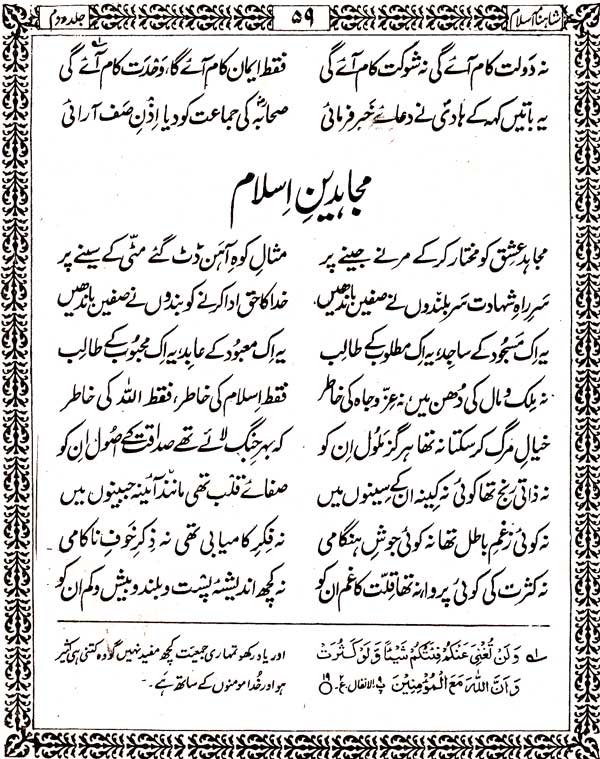 شاہنامہ اسلام ۵۹ جلد دوم
نہ دولت کام آئے گی نہ شوکت کام آئے گی فقط ایمان کام آئے گا، وحدت کام آئے گی ؎۱
یہ باتیں کہہ کے ہادیؐ نے دعائے خیر فرمائی صحابہؓ کی جماعت کو دیا اِذنِ صف آرائی
مجاہدینِ اِسلام
مجاہد عشق کو مختار کر کے مرنے جینے پر مثالِ کوہِ آہن ڈٹ گئے مٹی کے سینے پر
سرِ راہِ شہادت سر بلندوں نے صفیں باندھیں خدا کا حق ادا کرنے کو بندوں نے صفیں باندھیں
یہ اِک مسجود کے ساجد، یہ اِک مطلوب کے طالب یہ اِک معبود کے عابد، یہ اِک محبوب کے طالب
نہ ملک و مال کی دُھن میں، نہ عزّ و جاہ کی خاطر فقط اِسلام کی خاطر، فقط اللہ کی خاطر
خیالِ مرگ کر سکتا نہ تھا ہرگز ملول اِن کو کہ بہرِ جنگ لائے تھے صداقت کے اصول اِن کو
نہ ذاتی رنج تھا کوئی نہ کینہ ان کے سینوں میں صفائے قلب تھی مانندِ آئینہ جبینوں میں
نہ کوئی زعمِ باطل تھا نہ کوئی جوشِ ہنگامی نہ فِکرِ کامیابی تھی نہ ذِکرِ خوفِ ناکامی
نہ کثرت کی کوئی پروا، نہ تھا قلّت کا غم اِن کو نہ کچھ اندیشۂ پست و بلند و بیش و کم اِن کو
؎۱ وَلَنْ تُغْنِیَ عَنْکُمْ فِئَتُکُمْ شَیْئًا وَّلَوْ کَثُرَتْ اور یاد رکھو تمہاری جمعیت کچھ مفید نہیں گو وہ کتنی ہی کثیر
وَاَنَّ اللّٰہَ مَعَ الْمُؤْمِنِیْنَ ۱۹ الانفال ع۔ ہو اور خُدا مومنوں کے ساتھ ہے۔